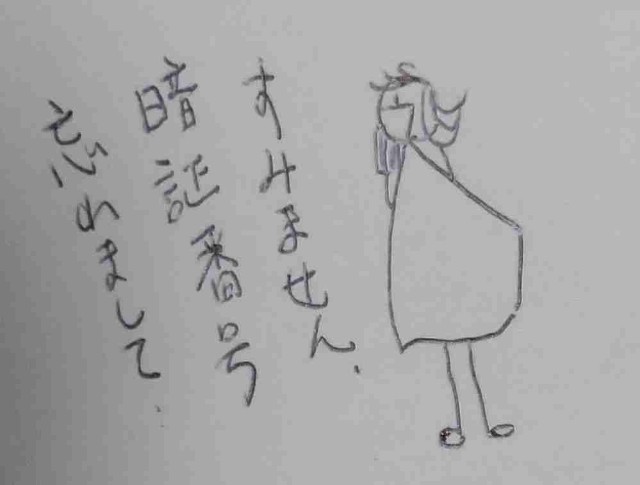 すみません、
暗証番号
忘れまして、